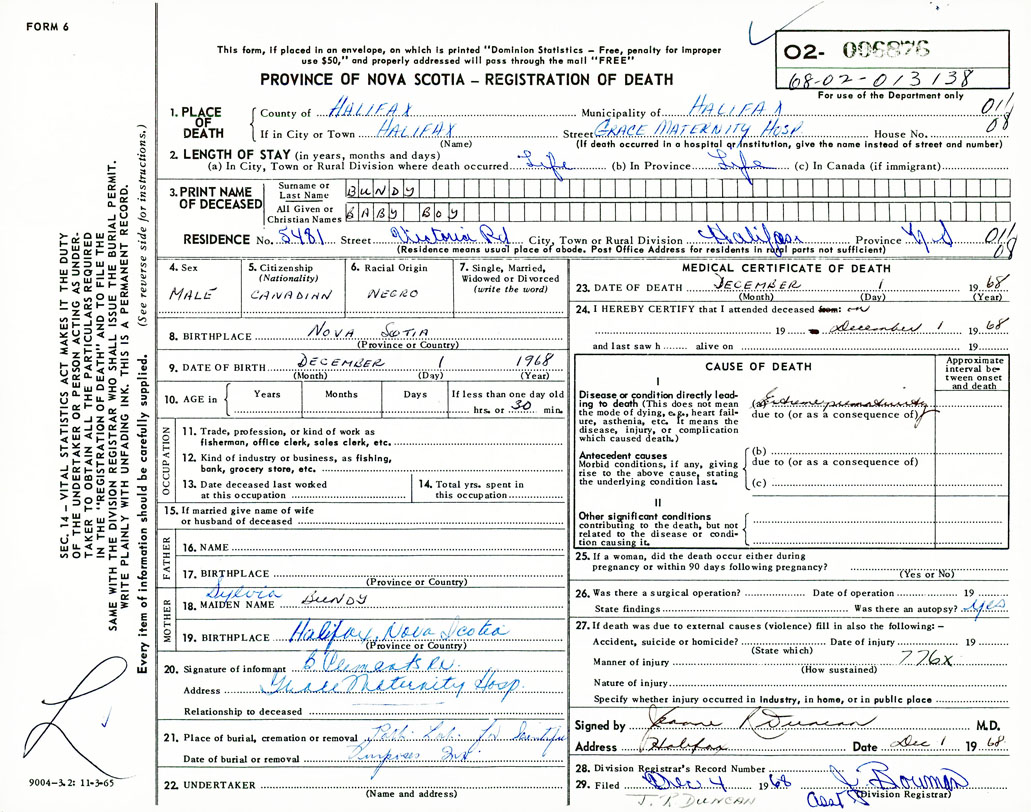 FORM 6
This form, if placed in an envelope, on which is printed "Dominion Statistics – Free, penalty for improper
use $50," and properly addressed will pass through the mail "FREE"
PROVINCE OF NOVA SCOTIA – REGISTRATION OF DEATH
O2- 006876
68-02-013138
For use of the Department only
1. PLACE OF DEATH
County of HALIFAX Municipality of HALIFAX 011
If in City or Town HALIFAX Street GRACE MATERNITY HOSP. House No. 08
(Name) (If death occurred in a hospital or institution, give the name instead of street and number)
2. LENGTH OF STAY (in years, months and days)
(a) In City, Town or Rural Division where death occurred Life (b) In Province Life (c) In Canada (if immigrant)
3. PRINT NAME OF DECEASED
Surname or Last Name BUNDY
All Given or Christian Names BABY BOY
RESIDENCE No. 5481 Street Victoria Rd City, Town or Rural Division Halifax Province N.S 011
(Residence means usual place of abode. Post Office Address for residents in rural parts not sufficient) 08
4. Sex
MALE
5. Citizenship
(Nationality)
CANADIAN
6. Racial Origin
NEGRO
7. Single, Married,
Widowed or Divorced
(write the word)
8. BIRTHPLACE NOVA SCOTIA
(Province or Country)
9. DATE OF BIRTH DECEMBER 1 1968
(Month) (Day) (Year)
10. AGE in
Years Months Days If less than one day old
hrs. or 30 min.
OCCUPATION
11. Trade, profession, or kind of work as
fisherman, office clerk, sales clerk, etc.
12. Kind of industry or business, as fishing,
bank, grocery store, etc.
13. Date deceased last worked
at this occupation
14. Total yrs. spent in
this occupation
15. If married give name of wife
or husband of deceased
FATHER
16. NAME
17. BIRTHPLACE
(Province or Country)
MOTHER
Sylvia
18. MAIDEN NAME BUNDY
19. BIRTHPLACE Halifax, Nova Scotia
(Province or Country)
20. Signature of informant B Clements RN.
Address Grace Maternity Hosp.
Relationship to deceased
21. Place of burial, cremation or removal Path. Lab. for Scientific
Date of burial or removal Purposes
22. UNDERTAKER
(Name and address)
MEDICAL CERTIFICATE OF DEATH
23. DATE OF DEATH DECEMBER 1 1968
(Month) (Day) (Year)
24. I HEREBY CERTIFY that I attended deceased from: on
19 December 1 1968
and last saw h alive on 19
CAUSE OF DEATH
Approximate
interval be-
tween onset
and death
I
Disease or condition directly lead-
ing to death (This does not mean
the mode of dying, e.g., heart fail-
ure, asthenia, etc. It means the
disease, injury, or complication
which caused death.)
(a) Extreme prematurity
due to (or as a consequence of)
Antecedent causes
Morbid conditions, if any, giving
rise to the above cause, stating
the underlying condition last.
(b)
due to (or as a consequence of)
(c)
II
Other significant conditions
contributing to the death, but not
related to the disease or condi-
tion causing it.
25. If a woman, did the death occur either during
pregnancy or within 90 days following pregnancy?
(Yes or No)
26. Was there a surgical operation? Date of operation 19
State findings Was there an autopsy? Yes
27. If death was due to external causes (violence) fill in also the following: –
Accident, suicide or homicide? Date of injury 19
(State which)
Manner of injury 776X
(How sustained)
Nature of injury
Specify whether injury occurred in industry, in home, or in public place
Signed by Jeanne P Duncan M.D.
Address Halifax Date Dec 1 1968
28. Division Registrar's Record Number
29. Filed Dec 4 1968 J. Bowman
J. T. DUNCAN Asst (Division Registrar)
SEC. 14 – VITAL STATISTICS ACT MAKES IT THE DUTY
OF THE UNDERTAKER OR PERSON ACTING AS UNDER-
TAKER TO OBTAIN ALL THE PARTICULARS REQUIRED
IN THE "REGISTRATION OF DEATH" AND TO FILE THE
SAME WITH THE DIVISION REGISTRAR WHO SHALL ISSUE THE BURIAL PERMIT.
WRITE PLAINLY WITH UNFADING INK. THIS IS A PERMANENT RECORD.
Every item of information should be carefully supplied. (See reverse side for instructions.)
9004-3.2: 11-3-65